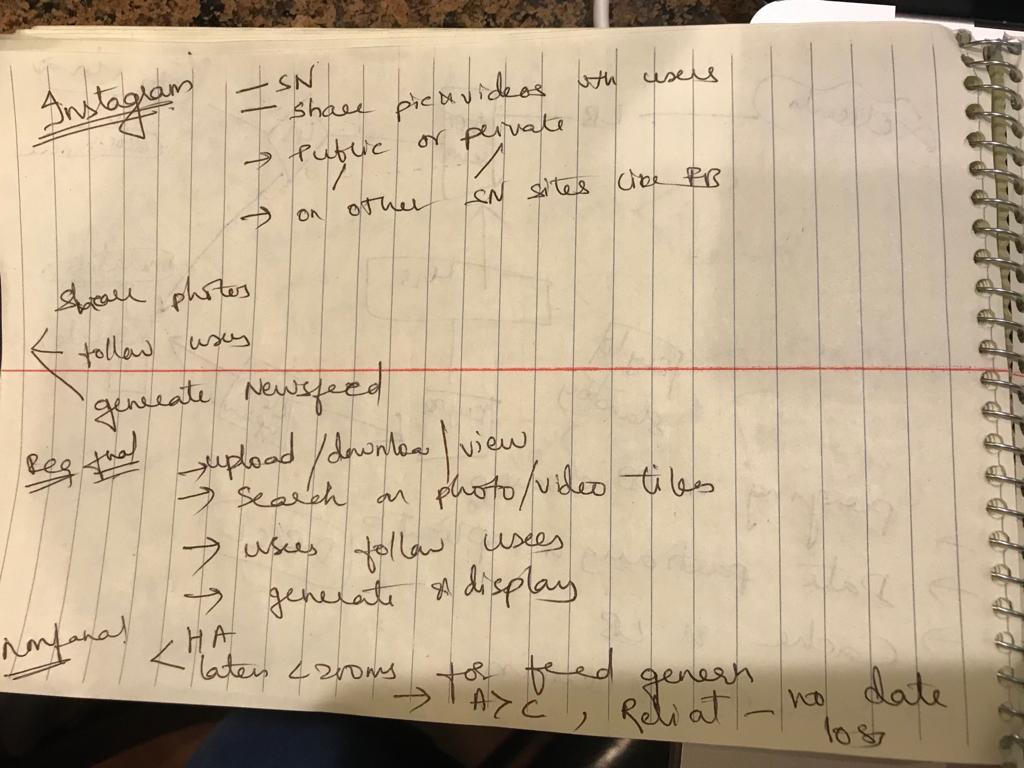 Instagram — SN
— share pic & videos with users
→ Public or private
→ on other SN sites like FB
share photos
follow users
generate Newsfeed
Req fnal → upload / download / view
→ Search on photo/video titles
→ users follow users
→ generate & display
Nonfnal < HA
laten < 200ms for feed genern
→ A > C, Reliat – no data
loss